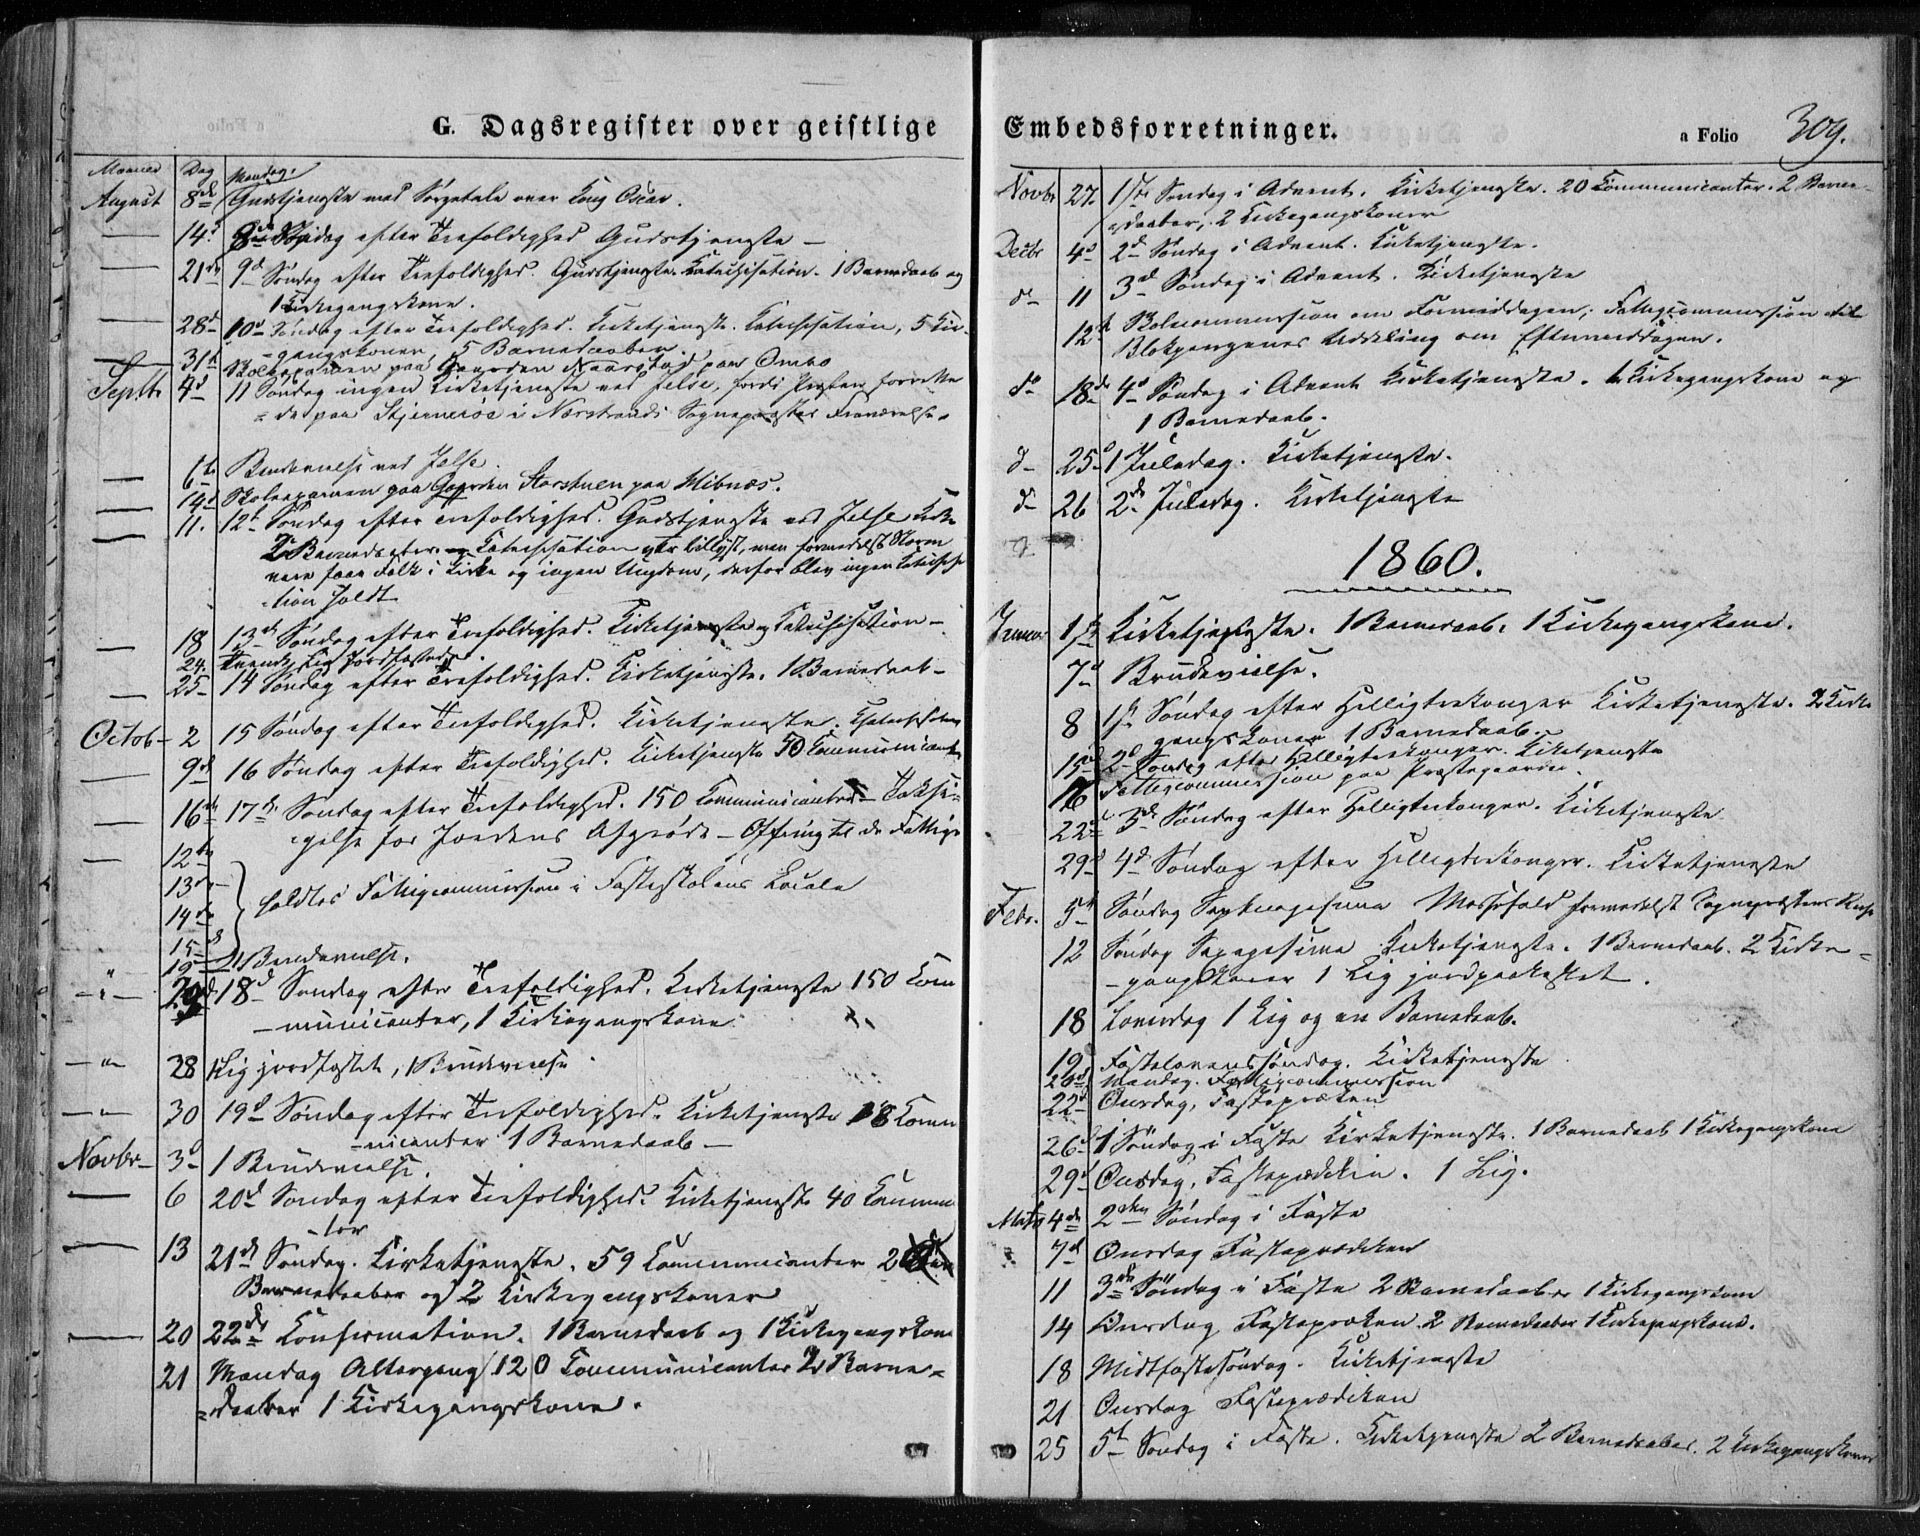 G. Dagsregister over geistlige
Maaned Dag Mandag.
August 8de Gudstjeneste med Sørgetale over Kong Oscar.
14 8de Søndag efter Trefoldighed Gudstjeneste
21de 9d Søndag efter Trefoldighed. Gudstjeneste. Katechisation. 1 Barnedaab og
1 Kirkegangskone.
28d 10d Søndag efter Trefoldighed. Kirketjeneste. Katechisation, 5 Kir-
gangskoner, 5 Barnedaaber.
31t Skoleexamen paa Gaarden Naarstad paa Ombo
Septbr 4d 11 Søndag ingen Kirketjeneste ved Jelse, fordi Præsten forrette
de paa Stjernerøe i Nærstrands Sognepræstes Fraværelse.
6te Brudevielse ved Jelse.
14d Skoleexamen paa Gaarden Storstuen paa Hibnæs.
11. 12t Søndag efter Trefoldighed. Gudstjeneste ved Jelse Kirke
2 Barnedaaber og Katechisation var billyst, men formedelst Storm
vare faae Folk i Kirke og ingen Ungdom, derfor blev ingen Katechisa
tion holdt
18 13de Søndag efter Trefoldighed. Kirketjeneste og Katechisation
24. Lig Jordfæstede.
25 14 Søndag efter Trefoldighed. Kirketjeneste. 1 Barnedaab
Octob 2 15 Søndag efter Trefoldighed. Kirketjeneste. Katechisation
9d 16 Søndag efter Trefoldighed. Kirketjeneste 50 Communicanter
16de 17de Søndag efter Trefoldighed. 150 Communicanter Taksi-
gelse for Jordens Afgrøde - Offring til de Fattige
12te
13de
14de holdtes Fattigcommission i Fasteskolens Locale
15de
19 1 Brudevielse.
18d Søndag efter Trefoldighed. Kirketjeneste 150 Com
municanter, 1 Kirkegangskone.
28 1 Lig jordfæstet, 1 Brudevielse.
30 19d Søndag efter Trefoldighed. Kirketjeneste 18 Comm
unicanter 1 Barnedaab
Novbr 3d 1 Brudevielse.
6 20d Søndag efter Trefoldighed. Kirketjeneste 40 Commun
ter
13 21de Søndag. Kirketjeneste. 59 Communicanter 2
Barnedaaber og 2 Kirkegangskoner
20 22de Confirmation. 1 Barnedaab og 1 Kirkegangskone
21 Mandag Altergang 120 Communicanter 2 Barne-
daaber 1 Kirkegangskone.
Embedsforretninger. a Folio 309.
Novbr 27. 1ste Søndag i Advent. Kirketjeneste. 20 Communicanter. 2 Barne-
daaber, 2 Kirkegangskoner
Decbr 4d 2d Søndag i Advent. Kirketjeneste.
d 11 3d Søndag i Advent. Kirketjeneste
12t Skolecommission om Formiddagen, Fattigcommission til
Blokpengenes Uddeling om Eftermiddagen.
do 18de 4d Søndag i Advent Kirketjeneste. 1 Kirkegangskone og
1 Barnedaab.
d 25 1 Juledag. Kirketjeneste.
d 26 2de Juledag. Kirketjeneste
1860.
Januar 1ste Kirketjeneste. 1 Barnedaab. 1 Kirkegangskone.
7d Brudevielse.
8 1ste Søndag efter Helligtrekonger Kirketjeneste. 2 Kirke
gangskoner 1 Barnedaab.
15 2d Søndag efter Helligtrekonger. Kirketjeneste
16 Fattigcommission paa Præstegaarden.
22d 3de Søndag efter Helligtrekonger. Kirketjeneste
29d 4d Søndag efter Helligtrekonger. Kirketjeneste
Febr. 5t Søndag Septuagesima Messefald formedelst Sognepræstens Reise
12 Søndag Sexagesima Kirketjeneste. 1 Barnedaab. 2 Kirke-
gangskoner 1 Lig jordpaakastet.
18 Løverdag 1 Lig og en Barnedaab.
19 Fastelavenssøndag. Kirketjeneste
20d Mandag. Fattigcommission
22d Onsdag, Fastepræken
26 1 Søndag i Faste Kirketjeneste. 1 Barnedaab 1 Kirkegangskone
29d Onsdag. Fasteprædiken. 1 Lig.
Marts 4de 2den Søndag i Faste
7d Onsdag Fasteprædiken
11 3de Søndag i Faste 2 Barnedaaber 1 Kirkegangskone
14 Onsdag Fastepræken. 2 Barnedaaber 1 Kirkegangskone.
18 Midtfastesøndag. Kirketjeneste
21 Onsdag Fasteprædiken
25 5t Søndag i Faste. Kirketjeneste 2 Barnedaaber. 2 Kirkegangskoner